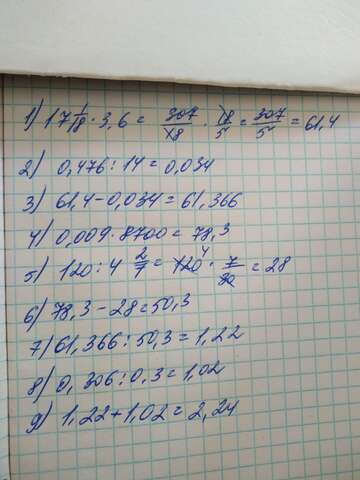 1) 17 1/18 · 3,6 = 307/18 · 18/5 = 307/5 = 61,4
2) 0,476 : 14 = 0,034
3) 61,4 - 0,034 = 61,366
4) 0,009 · 8700 = 78,3
5) 120 : 4 2/7 = 120 4 · 7/30 = 28
6) 78,3 - 28 = 50,3
7) 61,366 : 50,3 = 1,22
8) 0,306 : 0,3 = 1,02
9) 1,22 + 1,02 = 2,24